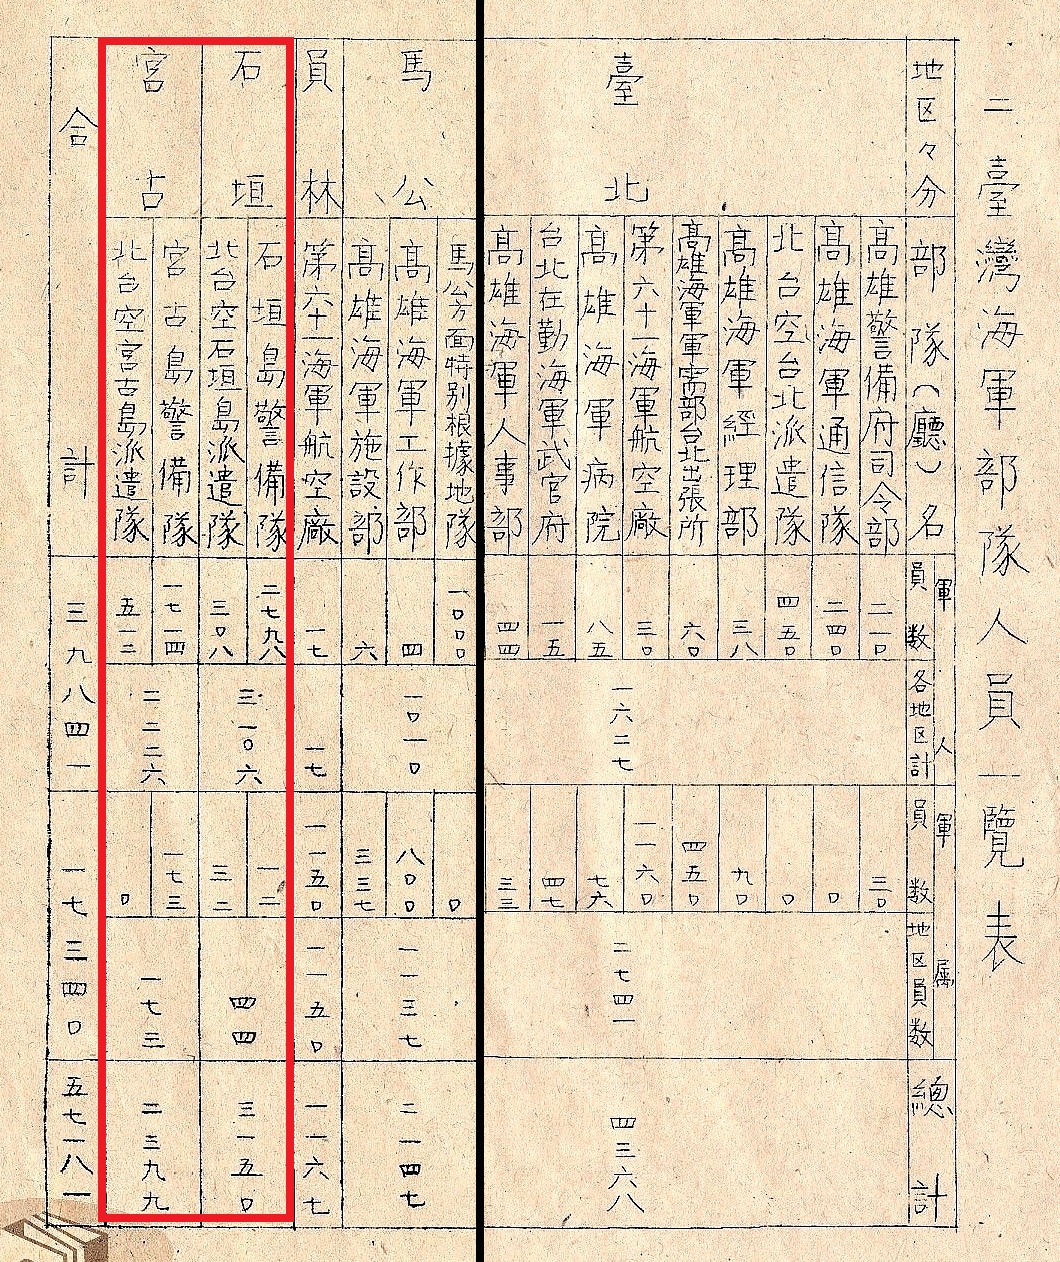 二臺灣海軍部隊人員一覽表
地区々分
部隊(廳)名
軍人
員数
各地区計
軍属
員数
地区員数
總計
臺北
高雄警備府司令部
二一〇
三〇
高雄海軍通信隊
二四〇
〇
北台空台北派遣隊
四五〇
〇
高雄海軍經理部
三八
九〇
高雄海軍軍需部台北出張所
六〇
四五〇
第六十一海軍航空廠
三〇
一一六〇
高雄海軍病院
八五
七六
台北在勤海軍武官府
一五
四七
高雄海軍人事部
四四
三三
一六二七
二七四一
四三六八
馬公
馬公方面特别根據地隊
一〇〇〇
〇
高雄海軍工作部
四
八〇〇
高雄海軍施設部
六
三三七
一〇一〇
一一三七
二一四七
員林
第六十一海軍航空廠
一七
一七
一一五〇
一一五〇
一一六七
石垣
石垣島警備隊
二七九八
一二
北台空石垣島派遣隊
三〇八
三二
三一〇六
四四
三一五〇
宮古
宮古島警備隊
一七一四
一七三
北台空宮古島派遣隊
五一二
〇
二二二六
一七三
二三九九
合計
三九八四一
一七三四〇
五七一八一